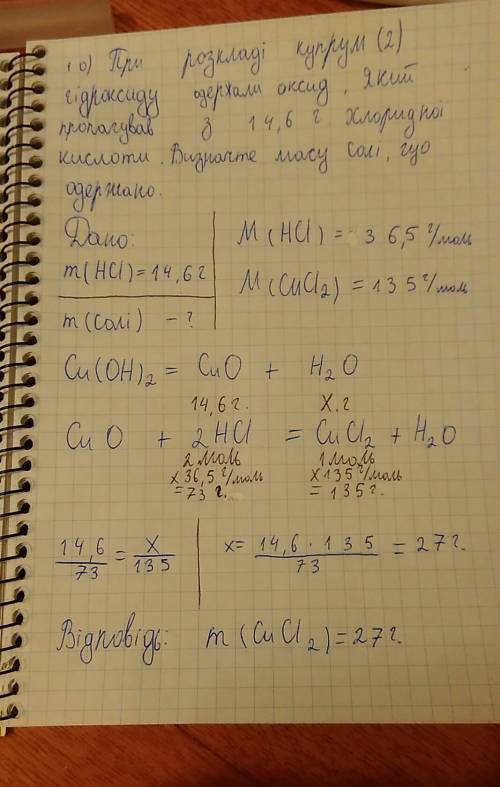 10) При розкладі купрум (2)
гідроксиду одержали оксид, який
прореагував з 14,6 г. Хлоридної
кислоти. Визначте масу солі, що
одержано.
Дано:
m(HCl)=14,6г
m(солі) -?
M(HCl) = 36,5 г/моль
M(CuCl2)=135 г/моль
Cu(OH)2 = CuO + H2O
14,6г. X.г
CuO + 2HCl = CuCl2 + H2O
2моль 1моль
x36,5г/моль x135г/моль
=73г. =135г.
14,6/73 = X/135
x= 14,6·135/73 = 27г.
Відповідь: m(CuCl2)=27г.